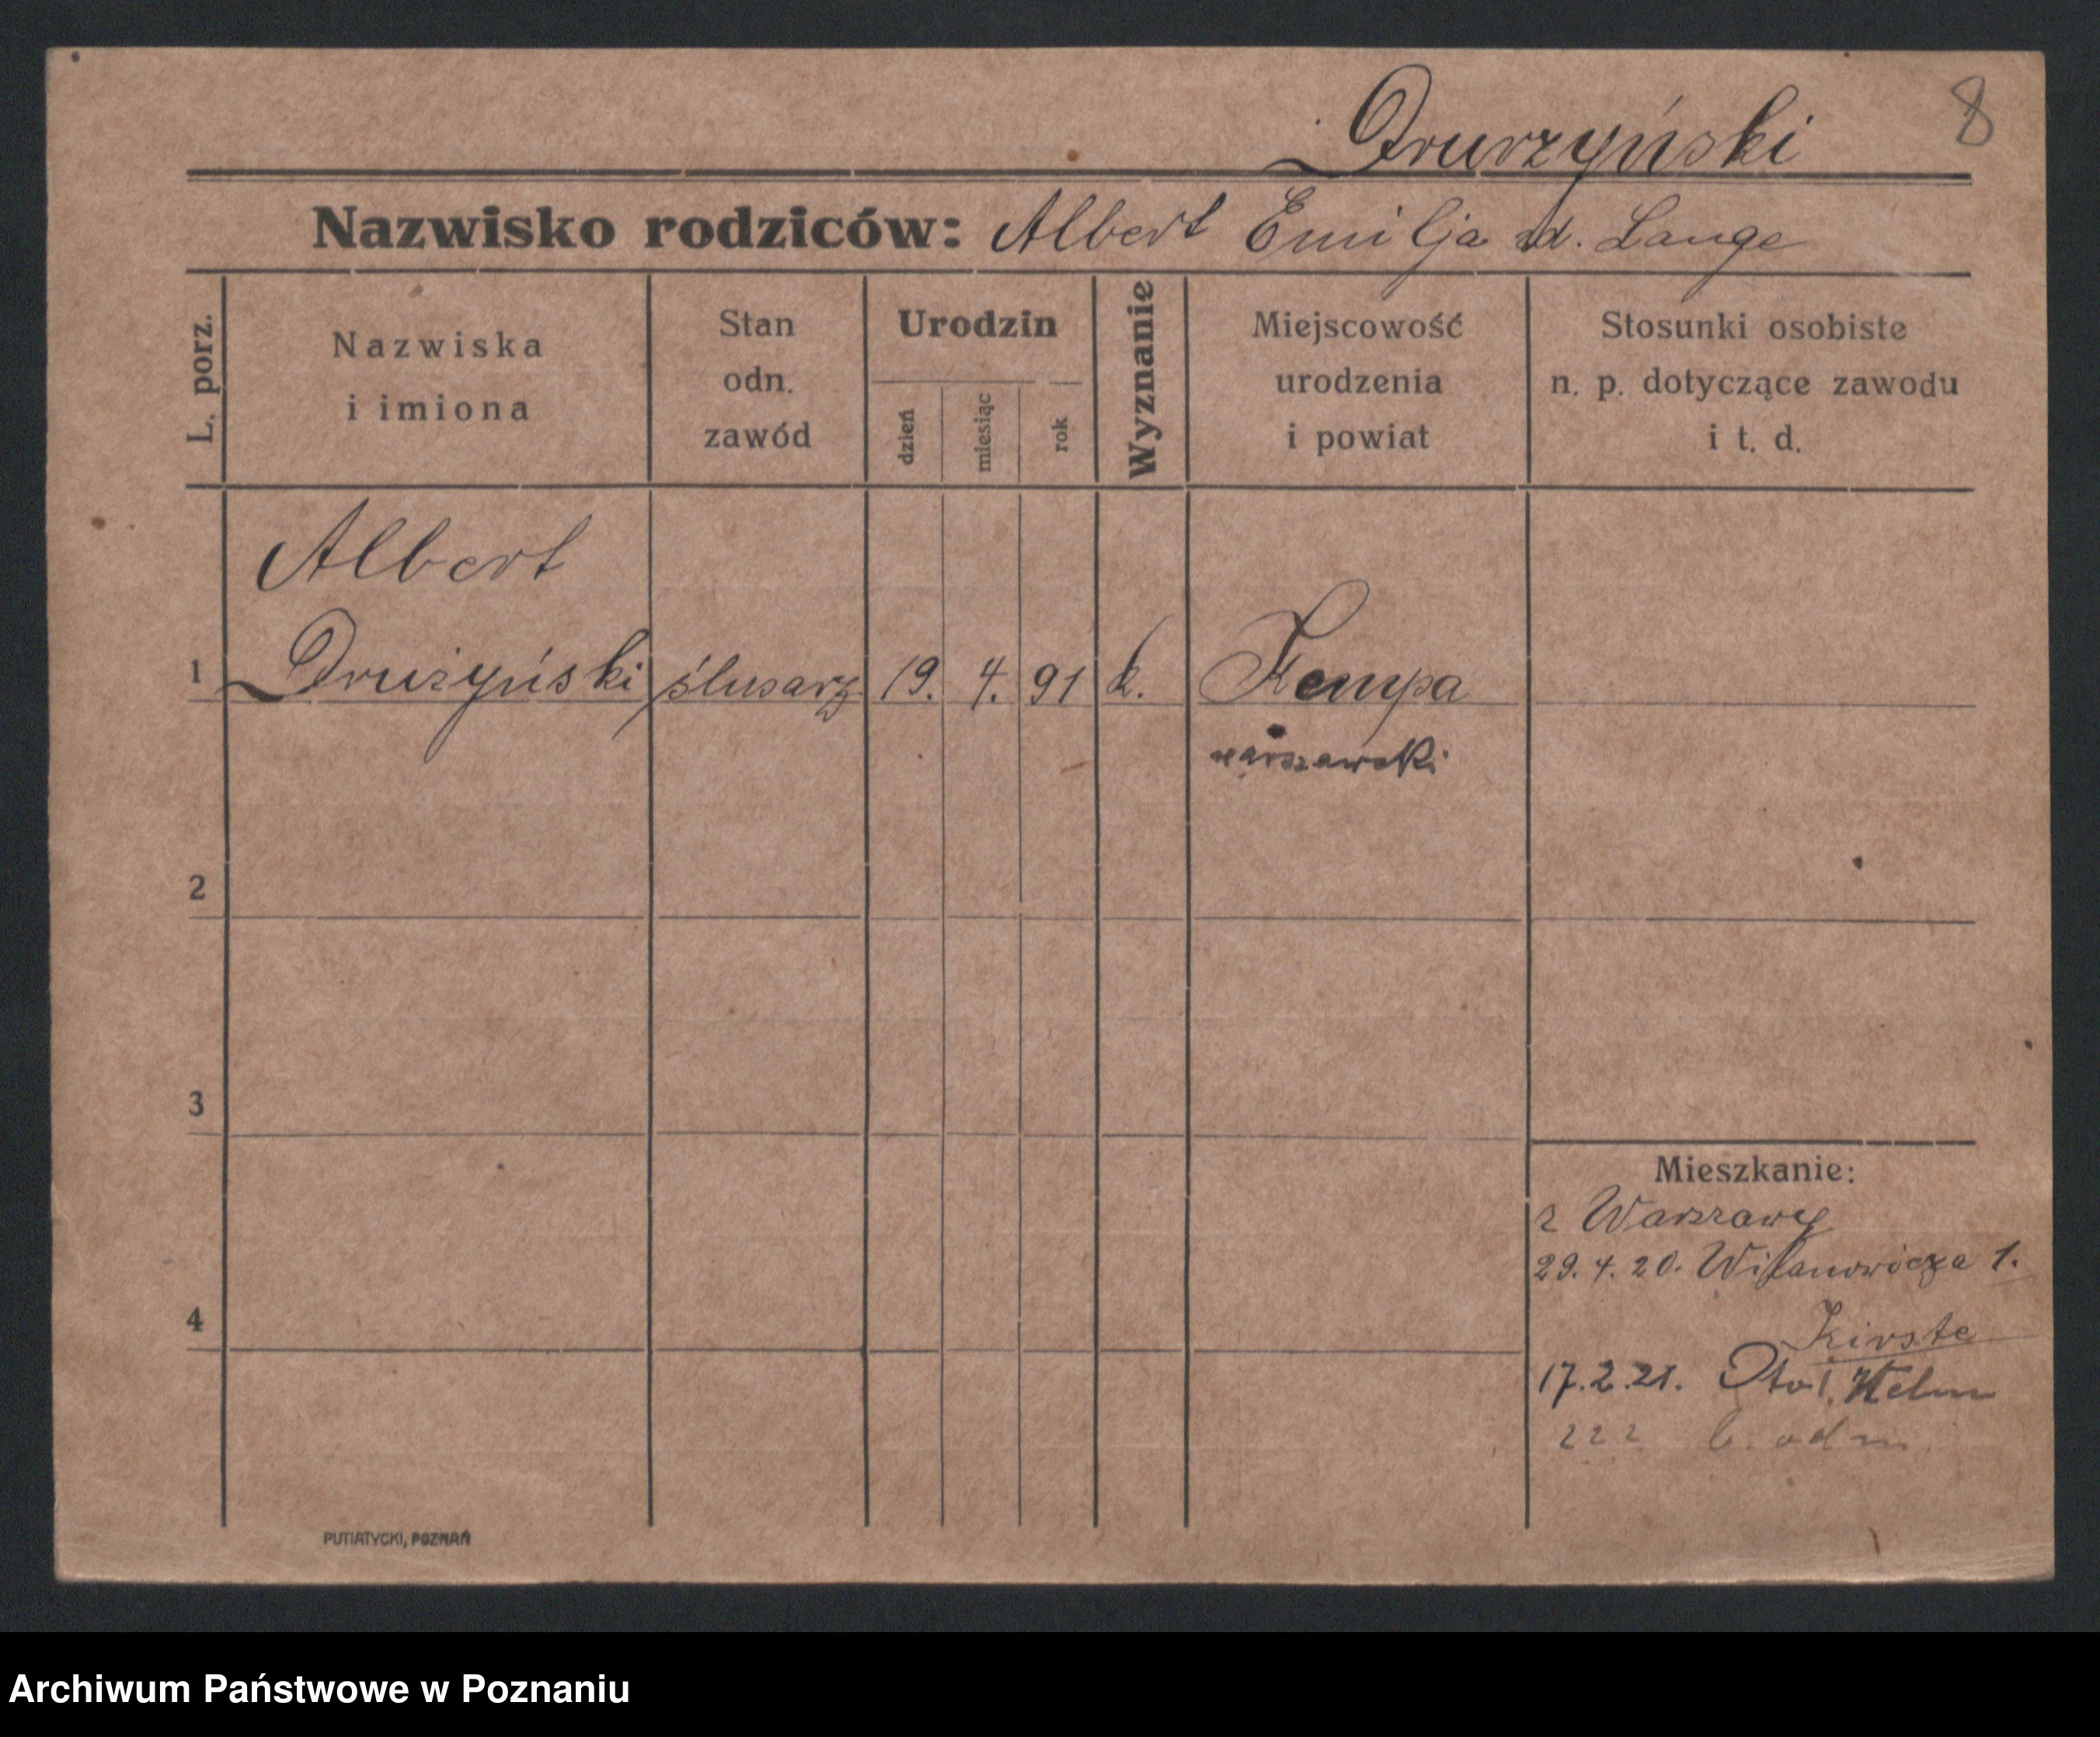 8
Drurzyński
Nazwisko rodziców: Albert Emilja d. Lange
L. porz.
Nazwiska i imiona
Stan odn. zawód
Urodzin
dzień miesiąc rok
Wyznanie
Miejscowość urodzenia i powiat
Stosunki osobiste n. p. dotyczące zawodu i t. d.
Albert
1 Drużyński ślusarz 19. 4. 91 k. Kempa
warszawski
2
3
Mieszkanie:
z Warszawy
29. 4. 20. Wilanowicza 1.
4
Kirste
17.2.21. Helm
222 b. adm.
PUTIATYCKI, POZNAŃ
Archiwum Państwowe w Poznaniu